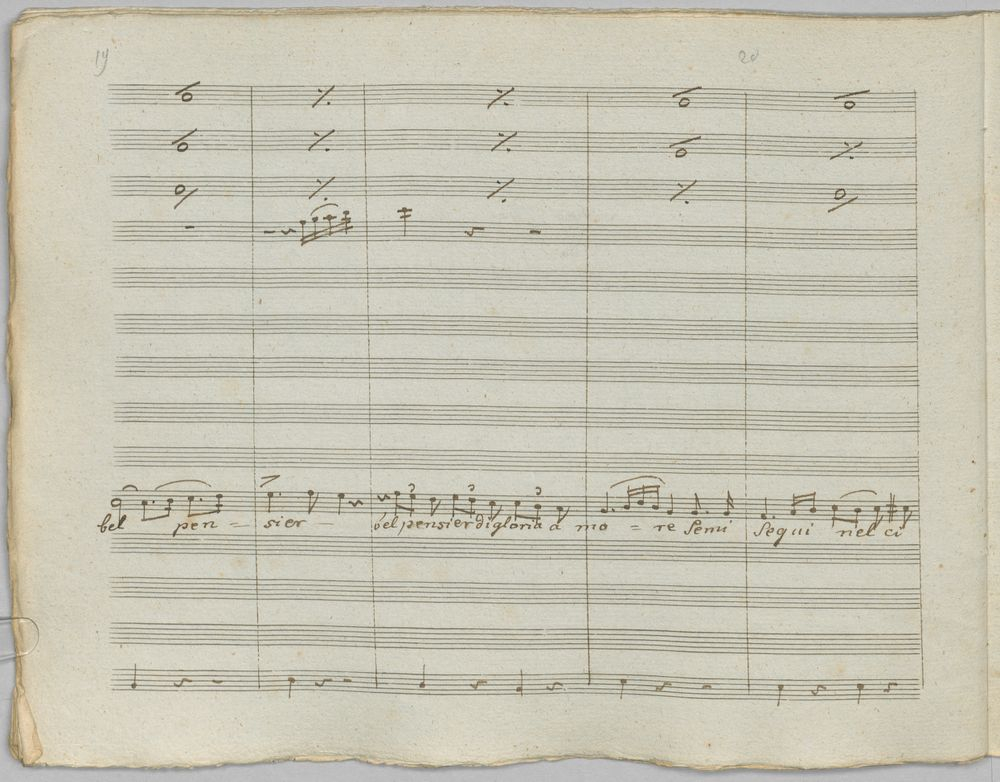 19 20
3 3 3
bel pen - sier - bel pensier di gloria a mo = re semi sequi nel ci